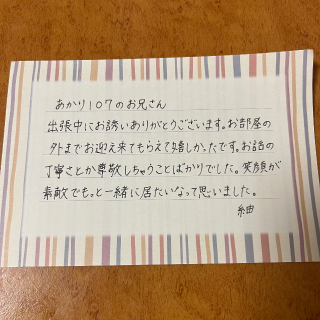 あかり107のお兄さん
出張中にお誘いありがとうございます。お部屋の
外までお迎え来てもらえて嬉しかったです。お話の
丁寧さとか尊敬しちゃうことばかりでした。笑顔が
素敵でもっと一緒に居たいなって思いました。
紬